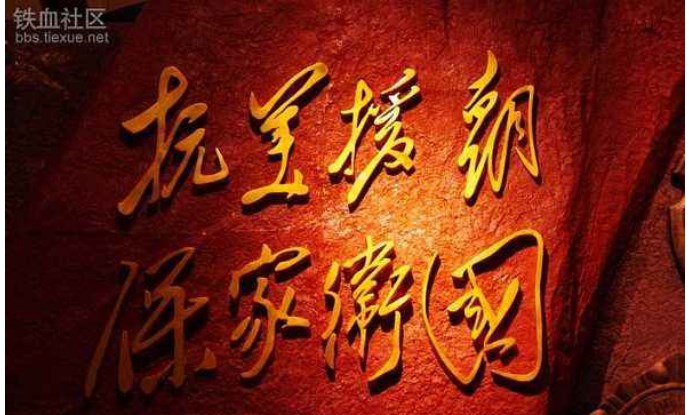 铁血社区
bbs.tiexue.net
抗美援朝
保家衛國